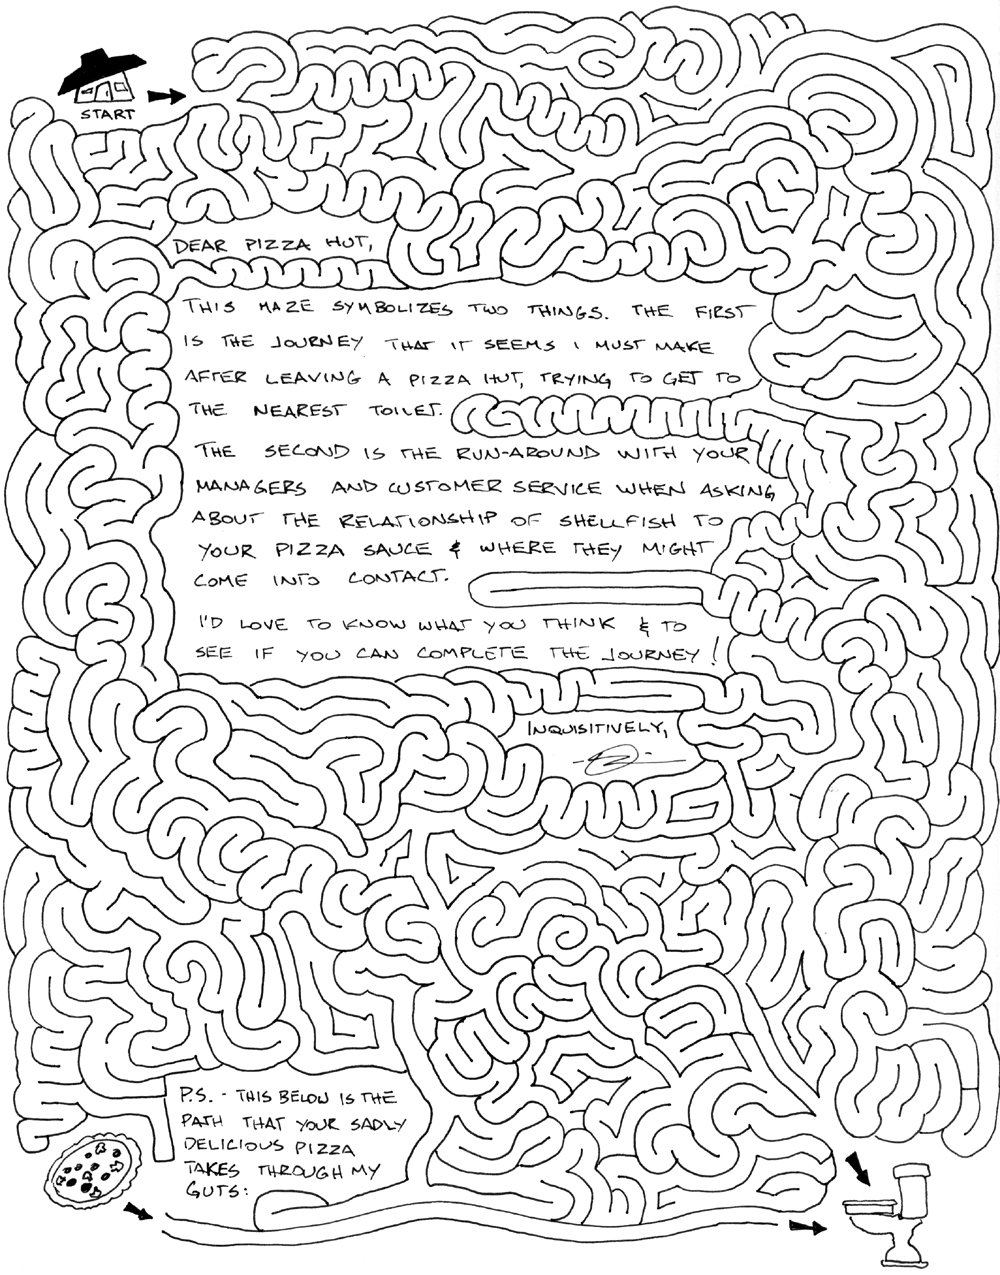 START
DEAR PIZZA HUT,
THIS MAZE SYMBOLIZES TWO THINGS. THE FIRST
IS THE JOURNEY THAT IT SEEMS I MUST MAKE
AFTER LEAVING A PIZZA HUT, TRYING TO GET TO
THE NEAREST TOILET.
THE SECOND IS THE RUN-AROUND WITH YOUR
MANAGERS AND CUSTOMER SERVICE WHEN ASKING
ABOUT THE RELATIONSHIP OF SHELLFISH TO
YOUR PIZZA SAUCE & WHERE THEY MIGHT
COME INTO CONTACT.
I'D LOVE TO KNOW WHAT YOU THINK & TO
SEE IF YOU CAN COMPLETE THE JOURNEY!
INQUISITIVELY,
P.S. - THIS BELOW IS THE
PATH THAT YOUR SADLY
DELICIOUS PIZZA
TAKES THROUGH MY
GUTS: